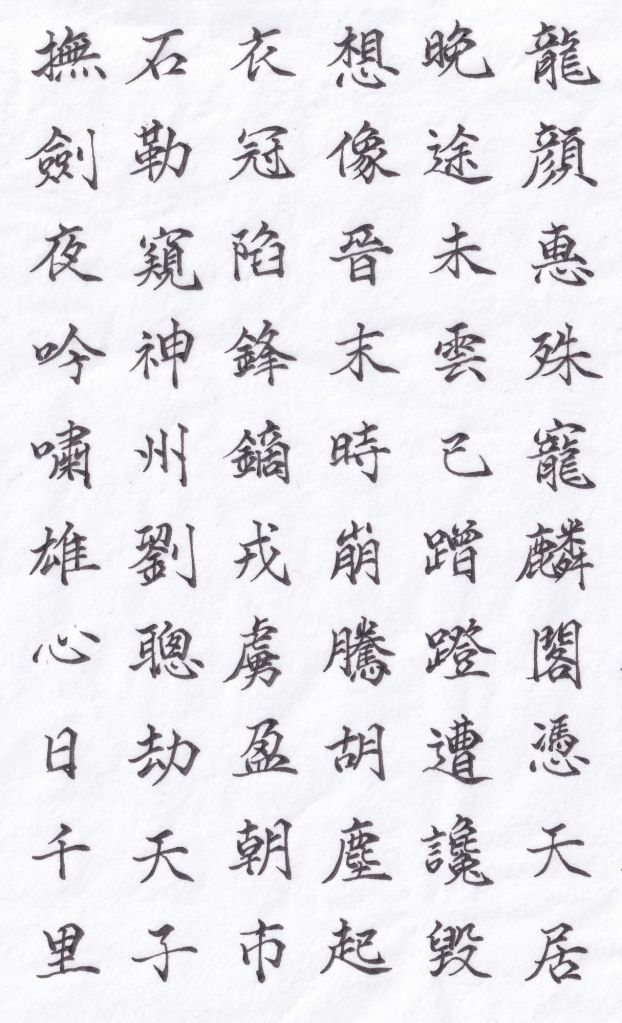 龍顔惠殊寵麟閣憑天居
晚途未雲已蹭蹬遭讒毀
想像晉末時崩騰胡塵起
衣冠陷鋒鏑戎虜盈朝市
石勒窺神州劉聰劫天子
撫劍夜吟嘯雄心日千里